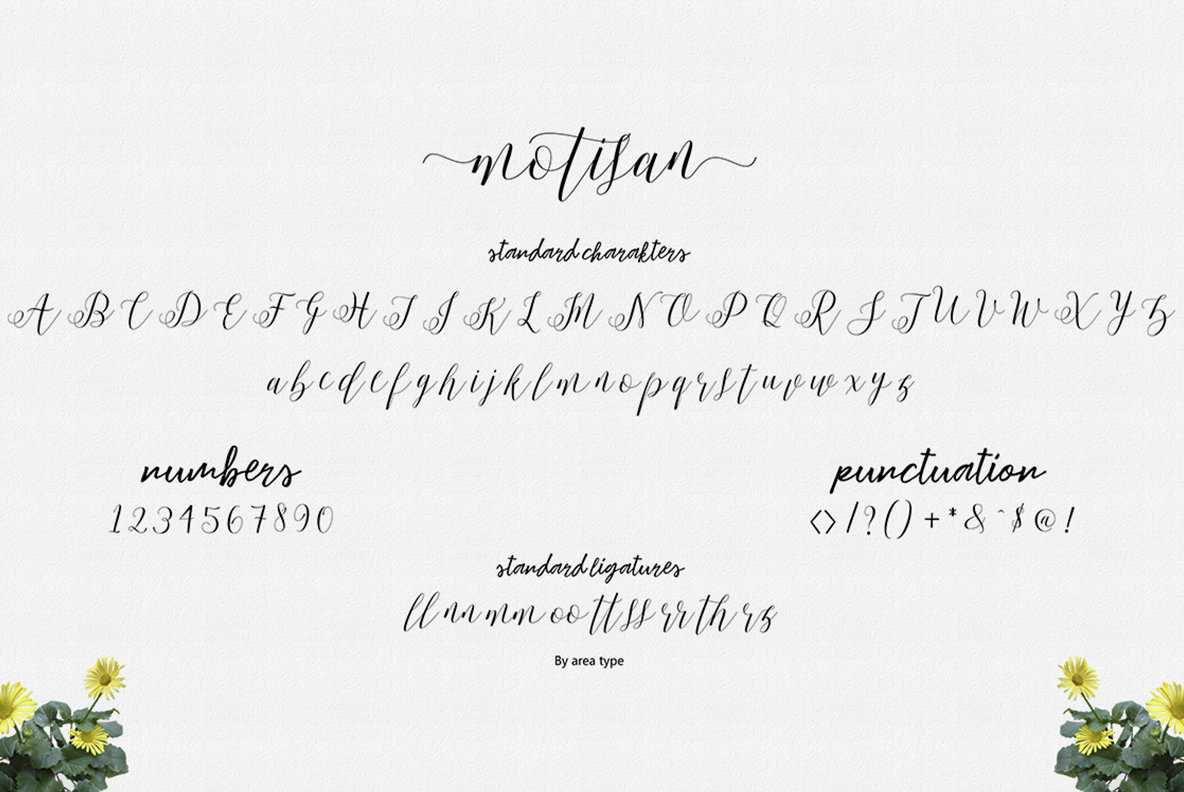 motisan
standard charakters
A B C D E F G H I J K L M N O P Q R S T U V W X Y Z
a b c d e f g h i j k l m n o p q r s t u v w x y z
numbers
1 2 3 4 5 6 7 8 9 0
punctuation
<> / ? ( ) + * & ^ $ @ !
standard ligatures
ll nn mm oo tt ss rr th rz
By area type